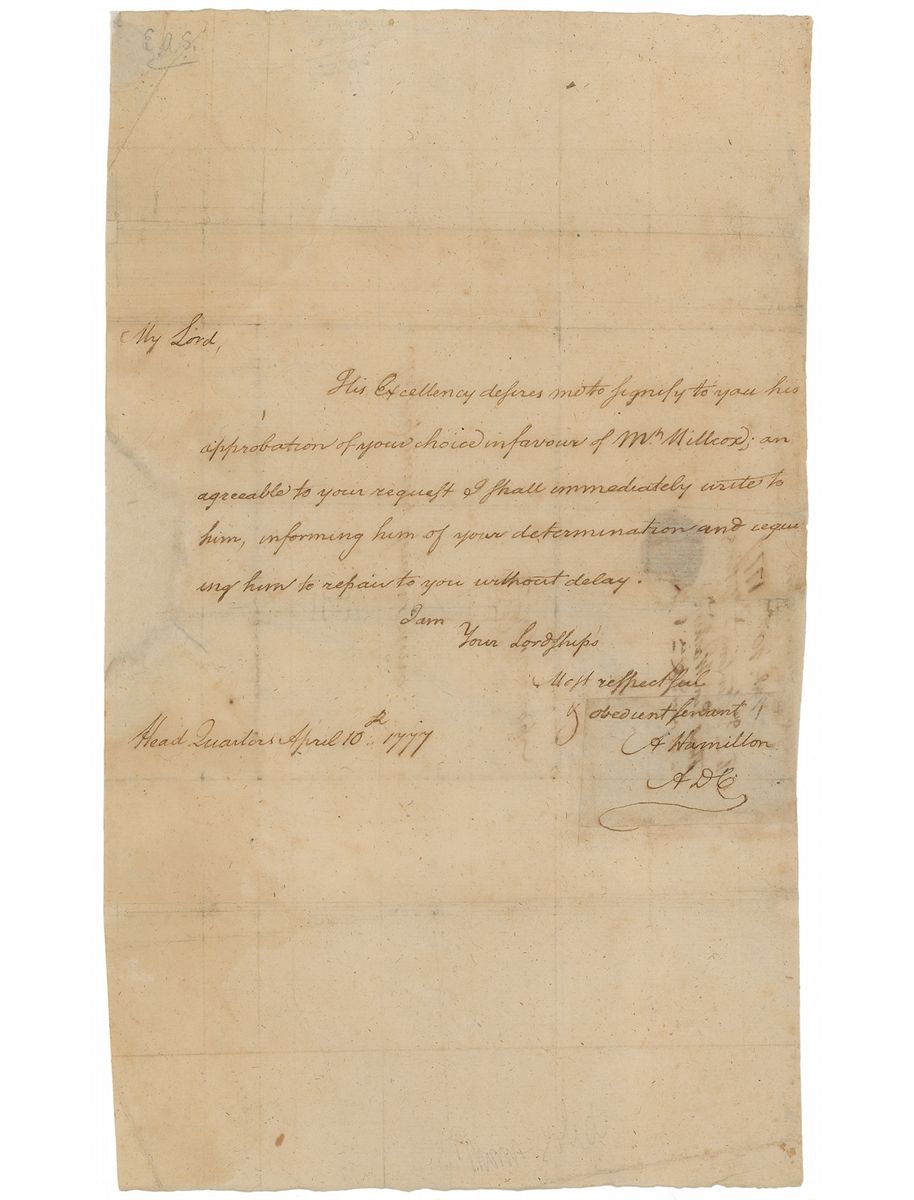 E.A.S.
My Lord,
His Excellency desires me to signify to you his
approbation of your choice in favour of Mr. Willcox; an
agreeable to your request I shall immediately write to
him, informing him of your determination and reque
ing him to repair to you without delay.
I am
Your Lordship's
Most respectful
& obedient servant
Head Quarters April 10th. 1777
A Hamilton
ADC